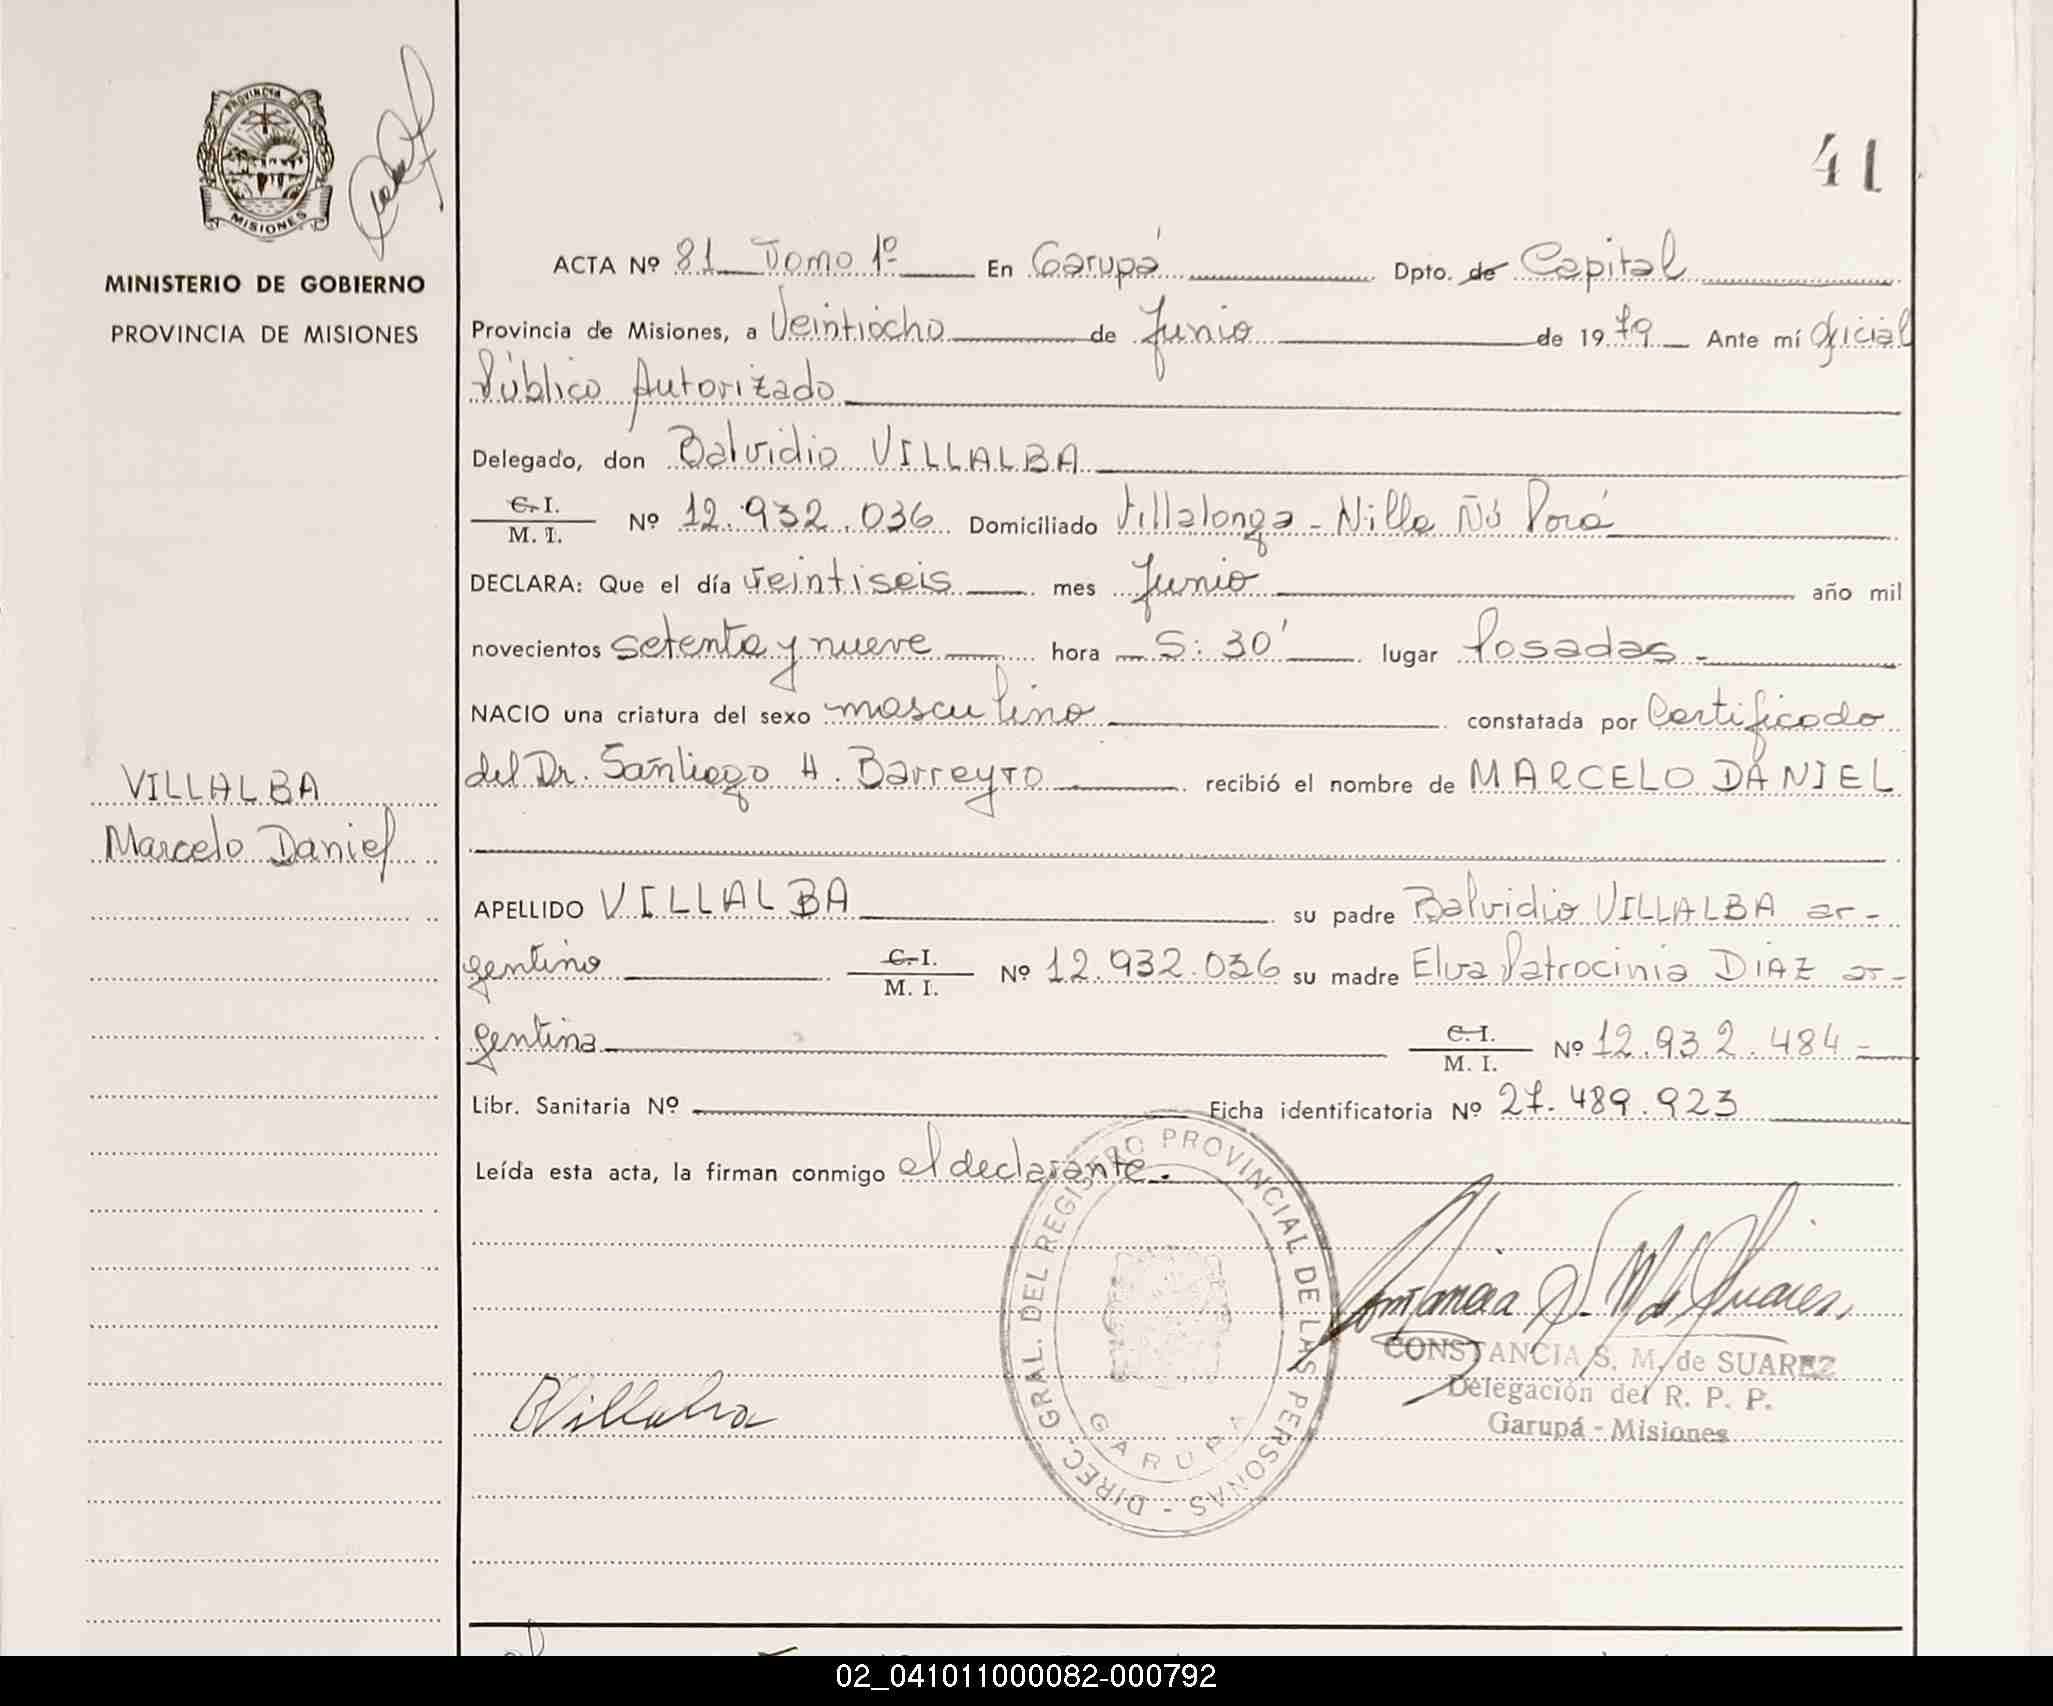 PROVINCIA DE
MISIONES
MINISTERIO DE GOBIERNO
PROVINCIA DE MISIONES
VILLALBA
Marcelo Daniel
41
ACTA Nº 81 Tomo 1º En Garupá Dpto. de Capital
Provincia de Misiones, a Veintiocho de Junio de 1979 Ante mí Oficial
Público Autorizado
Delegado, don Balvidio VILLALBA
C. I.
M. I. Nº 12.932.036 Domiciliado Villalonga - Villa Ñú Porá
DECLARA: Que el día veintiseis mes Junio año mil
novecientos setenta y nueve hora 5:30' lugar Posadas -
NACIO una criatura del sexo masculino constatada por Certificado
del Dr. Santiago H. Barreyro recibió el nombre de MARCELO DANIEL
APELLIDO VILLALBA su padre Balvidio VILLALBA ar-
gentino C. I.
M. I. Nº 12.932.036 su madre Elva Patrocinia DIAZ ar-
gentina C. I.
M. I. Nº 12.932.484 -
Libr. Sanitaria Nº Ficha identificatoria Nº 27.489.923
Leída esta acta, la firman conmigo el declarante.
DIREC. GRAL. DEL REGISTRO PROVINCIAL DE LAS PERSONAS -
GARUPA
BVillalba
Constancia S. M. de Suarez
CONSTANCIA S. M. de SUAREZ
Delegación del R. P. P.
Garupá - Misiones
02_041011000082-000792